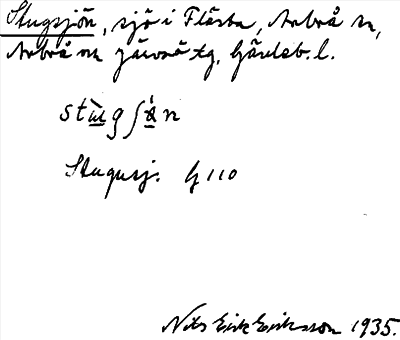 Stugsjön, sjö i Flästa, Arbrå sn,
Arbrå m järvsö tg, Gävleb. l.
stu̲gʃɵ̲n
Stugusj. G 110
Nils Erik Eriksson 1935.